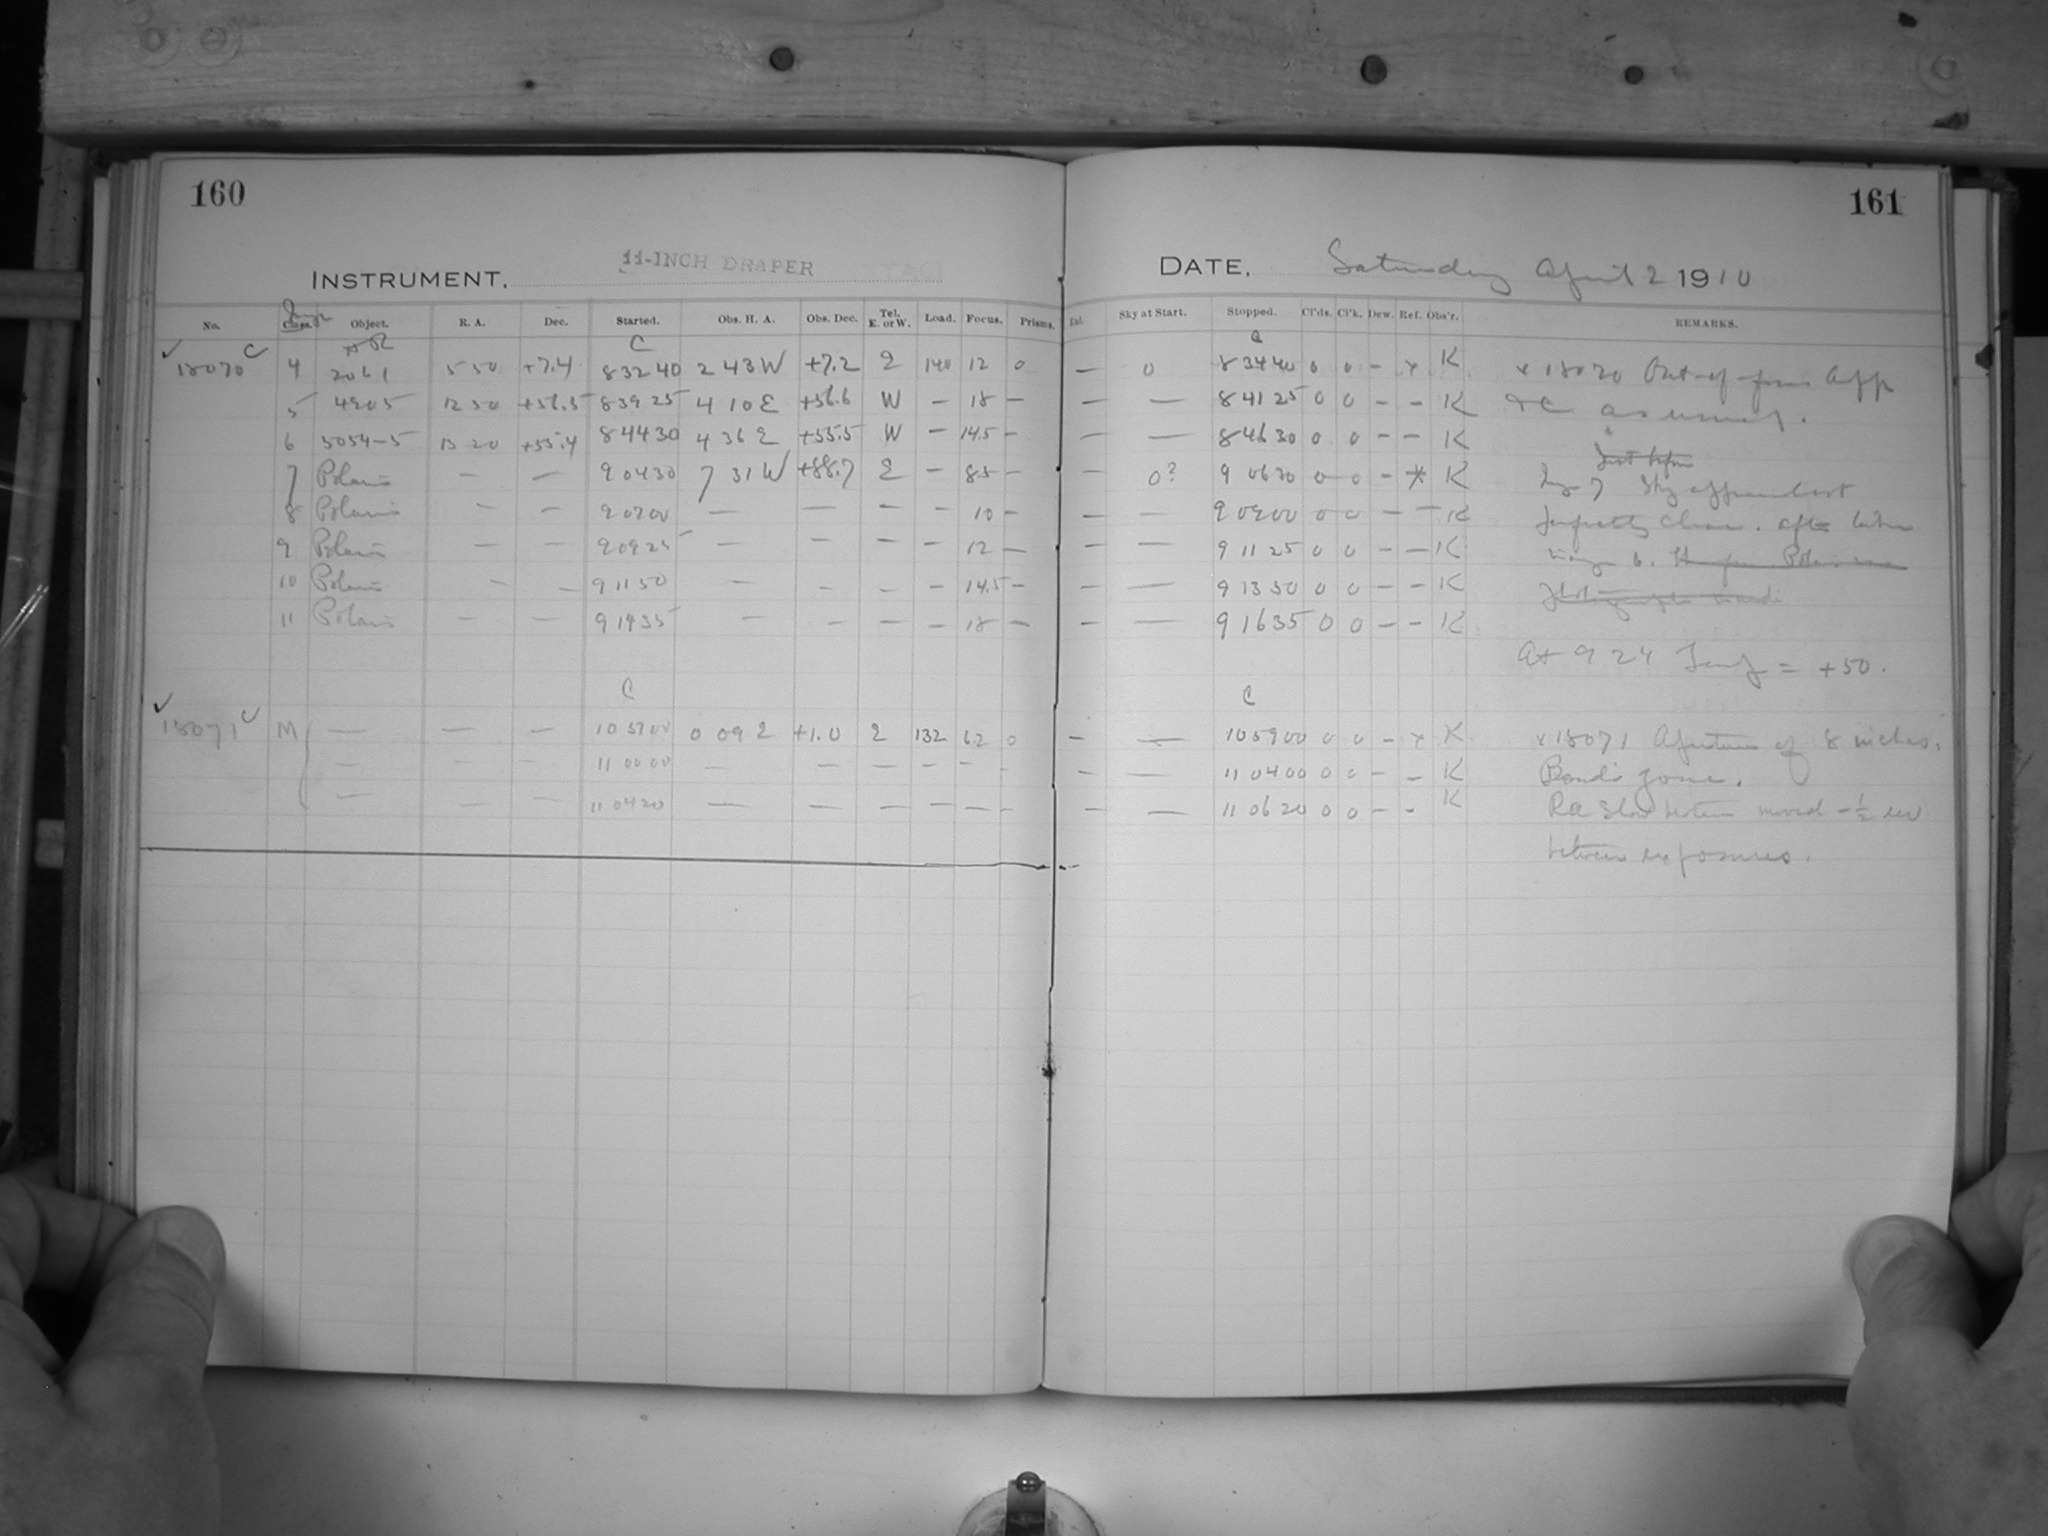 160
161
INSTRUMENT. 11-INCH DRAPER
DATE. Saturday April 2 1910
No. Class. Object. R. A. Dec. Started. Obs. H. A. Obs. Dec. Tel. E. or W. Load. Focus. Prisms. Exl. Sky at Start. Stopped. Cl'ds. Cl'k. Dew. Ref. Obs'r. REMARKS.
C C
18070 C 4 2061 5 50 +7.4 8 32 40 2 43 W +7.2 E 140 12 0 — 0 8 34 40 0 0 – x K x 18070 Out of focus
5 4905 12 50 +56.5 8 39 25 4 10 E +56.6 W — 18 — — — 8 41 25 0 0 – – K as usual.
6 5054-5 13 20 +55.4 8 44 30 4 36 E +55.5 W — 14.5 — — — 8 46 30 0 0 – – K
Just before
7 Polaris — — 9 04 30 7 31 W +88.7 E — 8.5 — — 0? 9 06 30 0 0 – * K 7 Sky
8 Polaris — — 9 07 00 — — – – 10 — — — 9 09 00 0 0 – – K perfectly clear. after
9 Polaris — — 9 09 25 — — – – 12 — — — 9 11 25 0 0 – – K 6.
10 Polaris — — 9 11 50 — — – – 14.5 — — — 9 13 50 0 0 – – K
11 Polaris — — 9 14 35 — — – – 18 — — — 9 16 35 0 0 – – K
At 9 24 Temp = +50.
C C
18071 C M — — — 10 57 00 0 09 E +1.0 E 132 6.2 0 — — 10 59 00 0 0 – x K x 18071 Aperture of 8 inches.
— — — 11 00 00 — — – – – – — — 11 04 00 0 0 – – K Bond's zone.
— — — 11 04 20 — — – – – – — — 11 06 20 0 0 – – K RA Slow motion moved -½ rev
between exposures.